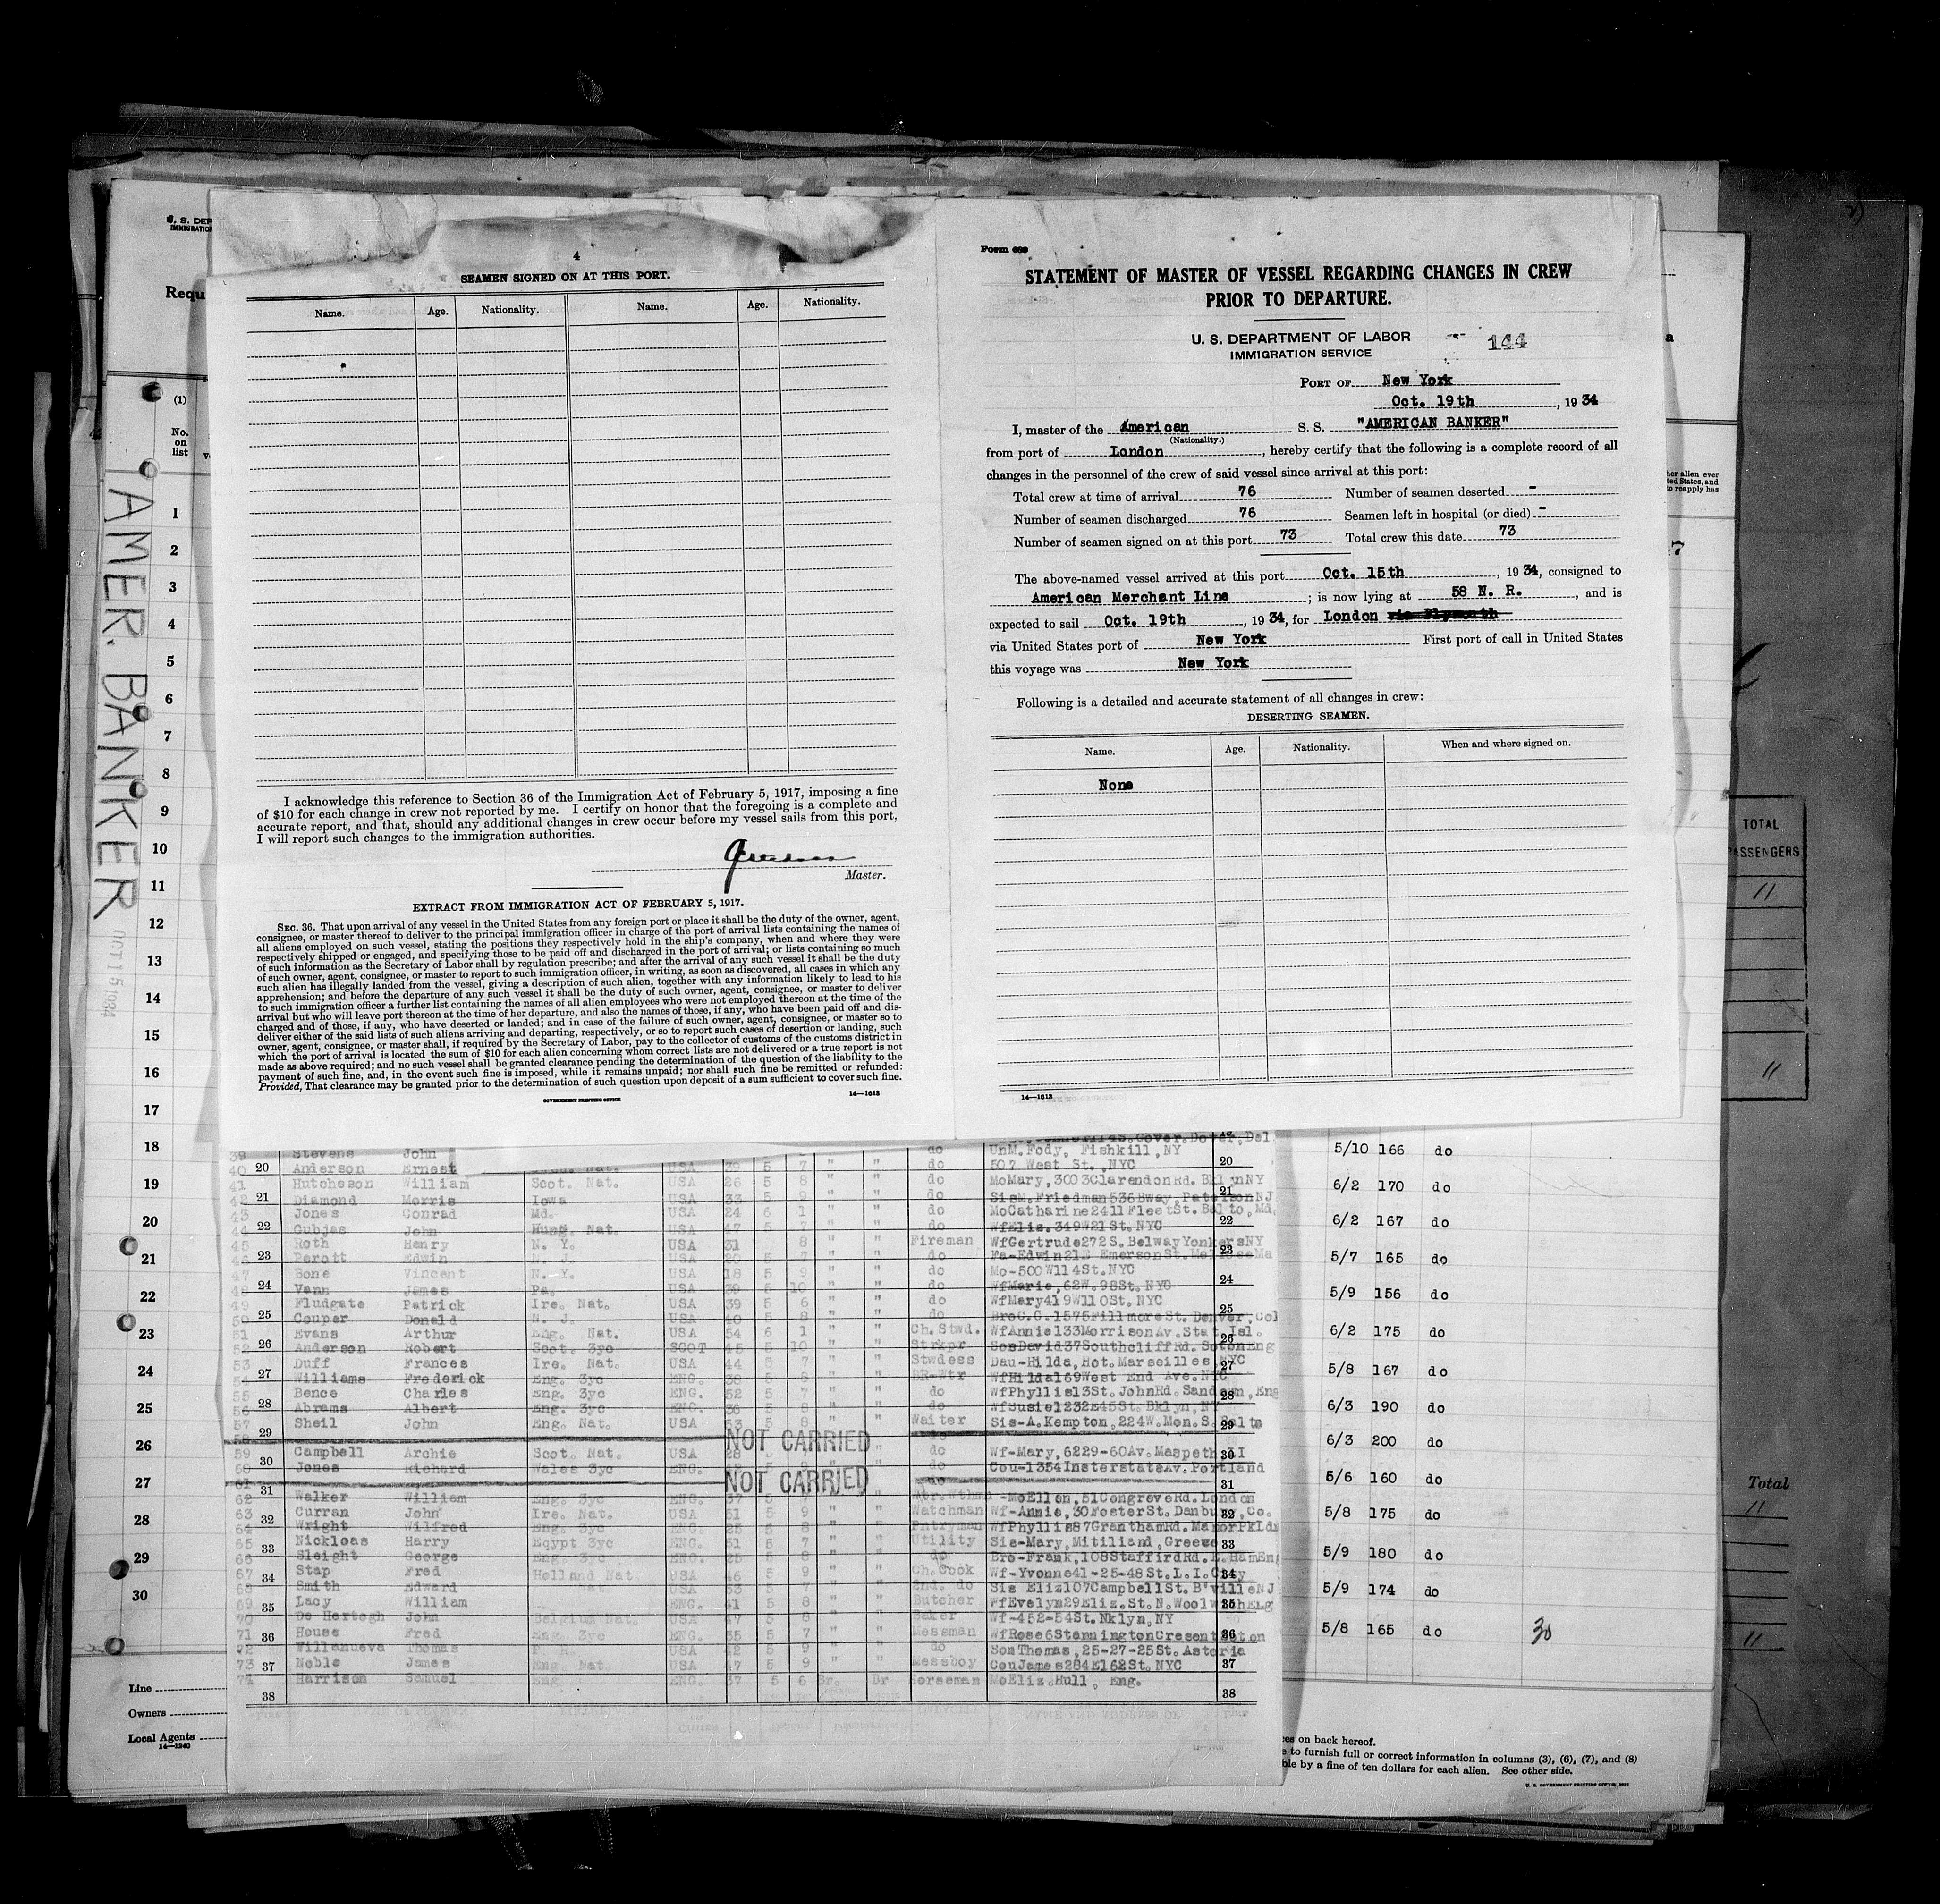 4
SEAMEN SIGNED ON AT THIS PORT.
Name. Age. Nationality. Name. Age. Nationality.
I acknowledge this reference to Section 36 of the Immigration Act of February 5, 1917, imposing a fine
of $10 for each change in crew not reported by me. I certify on honor that the foregoing is a complete and
accurate report, and that, should any additional changes in crew occur before my vessel sails from this port,
I will report such changes to the immigration authorities.
Master.
EXTRACT FROM IMMIGRATION ACT OF FEBRUARY 5, 1917.
SEC. 36. That upon arrival of any vessel in the United States from any foreign port or place it shall be the duty of the owner, agent,
consignee, or master thereof to deliver to the principal immigration officer in charge of the port of arrival lists containing the names of
all aliens employed on such vessel, stating the positions they respectively hold in the ship's company, when and where they were
respectively shipped or engaged, and specifying those to be paid off and discharged in the port of arrival; or lists containing so much
of such information as the Secretary of Labor shall by regulation prescribe; and after the arrival of any such vessel it shall be the duty
of such owner, agent, consignee, or master to report to such immigration officer, in writing, as soon as discovered, all cases in which any
such alien has illegally landed from the vessel, giving a description of such alien, together with any information likely to lead to his
apprehension; and before the departure of any such vessel it shall be the duty of such owner, agent, consignee, or master to deliver
to such immigration officer a further list containing the names of all alien employees who were not employed thereon at the time of the
arrival but who will leave port thereon at the time of her departure, and also the names of those, if any, who have been paid off and dis-
charged and of those, if any, who have deserted or landed; and in case of the failure of such owner, agent, consignee, or master so to
deliver either of the said lists of such aliens arriving and departing, respectively, or so to report such cases of desertion or landing, such
owner, agent, consignee, or master shall, if required by the Secretary of Labor, pay to the collector of customs of the customs district in
which the port of arrival is located the sum of $10 for each alien concerning whom correct lists are not delivered or a true report is not
made as above required; and no such vessel shall be granted clearance pending the determination of the question of the liability to the
payment of such fine, and, in the event such fine is imposed, while it remains unpaid; nor shall such fine be remitted or refunded:
Provided, That clearance may be granted prior to the determination of such question upon deposit of a sum sufficient to cover such fine.
GOVERNMENT PRINTING OFFICE 14—1613
Form 689
STATEMENT OF MASTER OF VESSEL REGARDING CHANGES IN CREW
PRIOR TO DEPARTURE.
U. S. DEPARTMENT OF LABOR
IMMIGRATION SERVICE
144
PORT OF New York
Oct. 19th, 1934
I, master of the American S. S. "AMERICAN BANKER"
(Nationality.)
from port of London, hereby certify that the following is a complete record of all
changes in the personnel of the crew of said vessel since arrival at this port:
Total crew at time of arrival 76 Number of seamen deserted -
Number of seamen discharged 76 Seamen left in hospital (or died) -
Number of seamen signed on at this port 73 Total crew this date 73
The above-named vessel arrived at this port Oct. 15th, 1934, consigned to
American Merchant Line; is now lying at 58 N. R., and is
expected to sail Oct. 19th, 1934, for London via Plymouth
via United States port of New York First port of call in United States
this voyage was New York
Following is a detailed and accurate statement of all changes in crew:
DESERTING SEAMEN.
Name. Age. Nationality. When and where signed on.
None
14—1613
AMER. BANKER
OCT 15 1934
(1)
No.
on
list
1
2
3
4
5
6
7
8
9
10
11
12
13
14
15
16
17
18
19
20
21
22
23
24
25
26
27
28
29
30
Line
Owners
Local Agents
14—1240
39 Stevens John do UnM. Fody, Fishkill, NY
40 Anderson Ernest USA 39 5 7 " " do 507 West St., NYC
41 Hutcheson William Scot. Nat. USA 26 5 8 " " do MoMary, 3003ClarendonRd. BklynNY
42 Diamond Morris Iowa USA 33 5 9 " " do SisM. Friedman536Bway, PatersonNJ
43 Jones Conrad Md. USA 24 6 1 " " do MoCatharine2411FleetSt. Balto, Md.
44 Gubjas John Hung Nat. USA 47 5 7 " " do WfEliz. 349W21St. NYC
45 Roth Henry N. Y. USA 31 8 " " Fireman WfGertrude272S. BelwayYonkersNY
46 Perott Edwin N. J. USA 20 5 7 " " do
47 Bone Vincent N. Y. USA 18 5 9 " " do Mo-500W114St. NYC
48 Vann James Pa. USA 39 5 10 " " do WfMarie, 62W. 98St. NYC
49 Fludgate Patrick Ire. Nat. USA 39 5 6 " " do WfMary419W110St. NYC
50 Couper Donald N. J. USA 40 5 8 " " do BroC.G. 1575FillmoreSt. Denver, Col
51 Evans Arthur Eng. Nat. USA 54 6 1 " " Ch. Stwd. WfAnnie133MorrisonAv. Stat. Isl.
52 Anderson Robert Scot. 3yc SCOT 45 5 10 " " Strkpr SonDavid37SouthcliffRd. SotonEng
53 Duff Frances Ire. Nat. USA 44 5 7 " " Stwdess Dau-Hilda, Hot. Marseilles, NYC
54 Williams Frederick Eng. 3yc ENG. 38 5 8 " " BR-Wtr WfHilda169West End Ave. NYC
55 Bence Charles Eng. 3yc ENG. 52 5 7 " " do WfPhyllis13St. JohnRd. Sandown, Eng
56 Abrams Albert Eng. 3yc ENG. 36 5 8 " " do WfSusie1232E45St. Bklyn, NY
57 Sheil John Eng. Nat. USA 53 5 8 " " Waiter Sis-A. Kempton, 224W. Mon. S. Balto
NOT CARRIED
59 Campbell Archie Scot. Nat. USA 28 " do Wf-Mary, 6229-60Av. Maspeth LI
60 Jones Richard Wales 3yc ENG. do Cou-1354InsterstateAv. Portland
NOT CARRIED
62 Walker William Eng. 3yc ENG. 37 5 7 -MoEllen, 51CongreveRd. London
63 Curran John Ire. Nat. USA 51 5 9 " " Watchman Wf-Annie, 30FosterSt. Danbury, Co.
64 Wright Wilfred Eng. 3yc ENG. 25 5 8 " " Pntryman WfPhyllis87GranthamRd. ManorPkLdn
65 Nickloas Harry Eqypt 3yc ENG. 51 5 7 " " Utility Sis-Mary, Mitiliand, Greece
66 Sleight George Eng. 3yc ENG. 25 5 8 " " do Bro-Frank, 108StaffirdRd. E. HamEng
67 Stap Fred Holland Nat. USA 46 5 9 " " Ch. Cook Wf-Yvonne41-25-48St. L. I. City
68 Smith Edward USA 53 5 7 " " 2nd. do Sis Eliz107CampbellSt. B'villeNJ
69 Lacy William ENG. 41 5 8 " " Butcher WfEvelyn29Eliz. St. N. WoolwichEng
70 De Hertogh John Belgium Nat. USA 47 5 8 " " Baker Wf-452-54St. Nklyn, NY
71 House Fred Eng. 3yc ENG. 55 5 7 " " Messman WfRose6StanningtonCresentSoton
72 Willanueva Thomas USA 42 5 9 " " do SonThomas, 25-27-25St. Astoria
73 Noble James Eng. Nat USA 47 5 9 " " Messboy CouJames284E162St. NYC
74 Harrison Samuel Eng. ENG. 37 5 6 Br. Dr Horseman MoEliz. Hull, Eng.
20
21
22
23
24
25
26
27
28
29
30
31
32
33
34
35
36
37
38
5/10 166 do
6/2 170 do
6/2 167 do
5/7 165 do
5/9 156 do
6/2 175 do
5/8 167 do
6/3 190 do
6/3 200 do
5/6 160 do
5/8 175 do
5/9 180 do
5/9 174 do
5/8 165 do
30
TOTAL
PASSENGERS
11
11
Total
11
11
on back hereof.
to furnish full or correct information in columns (3), (6), (7), and (8)
ble by a fine of ten dollars for each alien. See other side.
U. S. GOVERNMENT PRINTING OFFICE